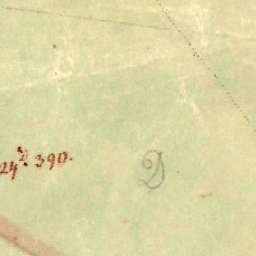 24 390.
D